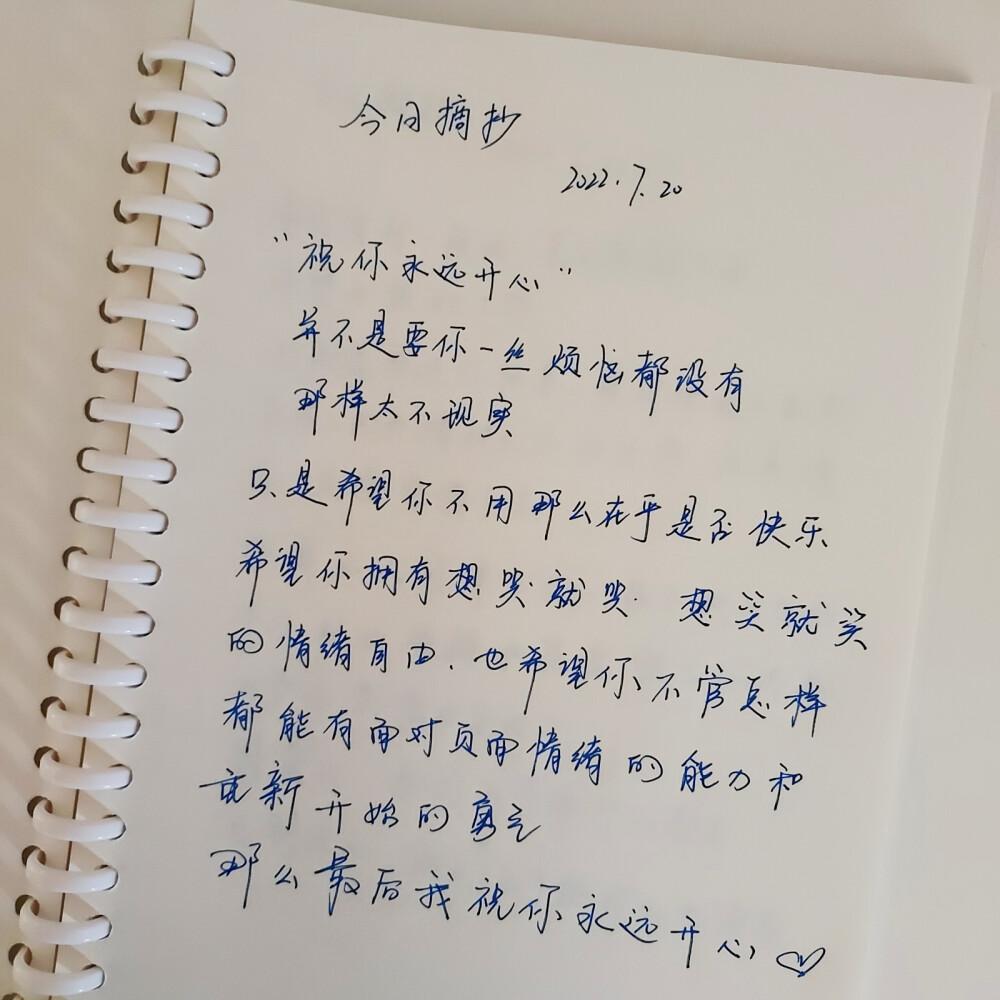 今日摘抄
2022.7.20
“祝你永远开心”
并不是要你一丝烦恼都没有
那样太不现实
只是希望你不用那么在乎是否快乐
希望你拥有想哭就哭 想笑就笑
的情绪自由，也希望你不管怎样
都能有面对负面情绪的能力和
重新开始的勇气
那么最后我祝你永远开心♡